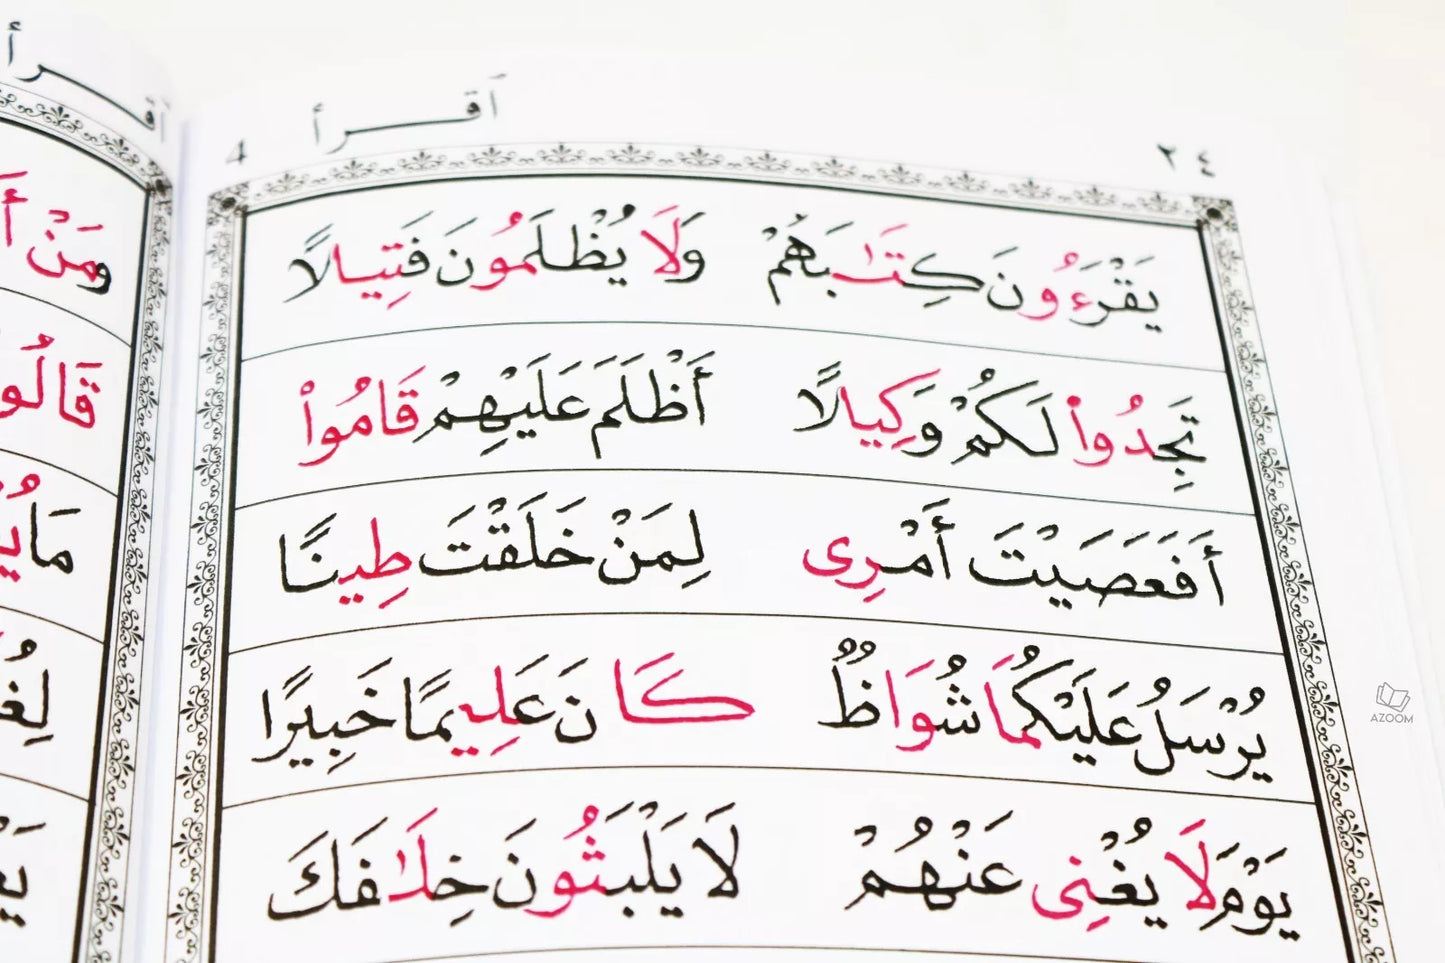 ٢٤ اَقــرأ 4
يَقْرَءُونَ كِتَـٰبَهُمْ وَلَا يُظْلَمُونَ فَتِيلًا
تَجِدُوا۟ لَكُمْ وَكِيلًا أَظْلَمَ عَلَيْهِمْ قَامُوا۟
أَفَعَصَيْتَ أَمْرِى لِمَنْ خَلَقْتَ طِينًا
يُرْسَلُ عَلَيْكُمَا شُوَاظٌ كَانَ عَلِيمًا خَبِيرًا
يَوْمَ لَا يُغْنِى عَنْهُمْ لَا يَلْبَثُونَ خِلَـٰفَكَ
اَقــرأ
وَمَنْ
قَالُو
مَا
AZOOM